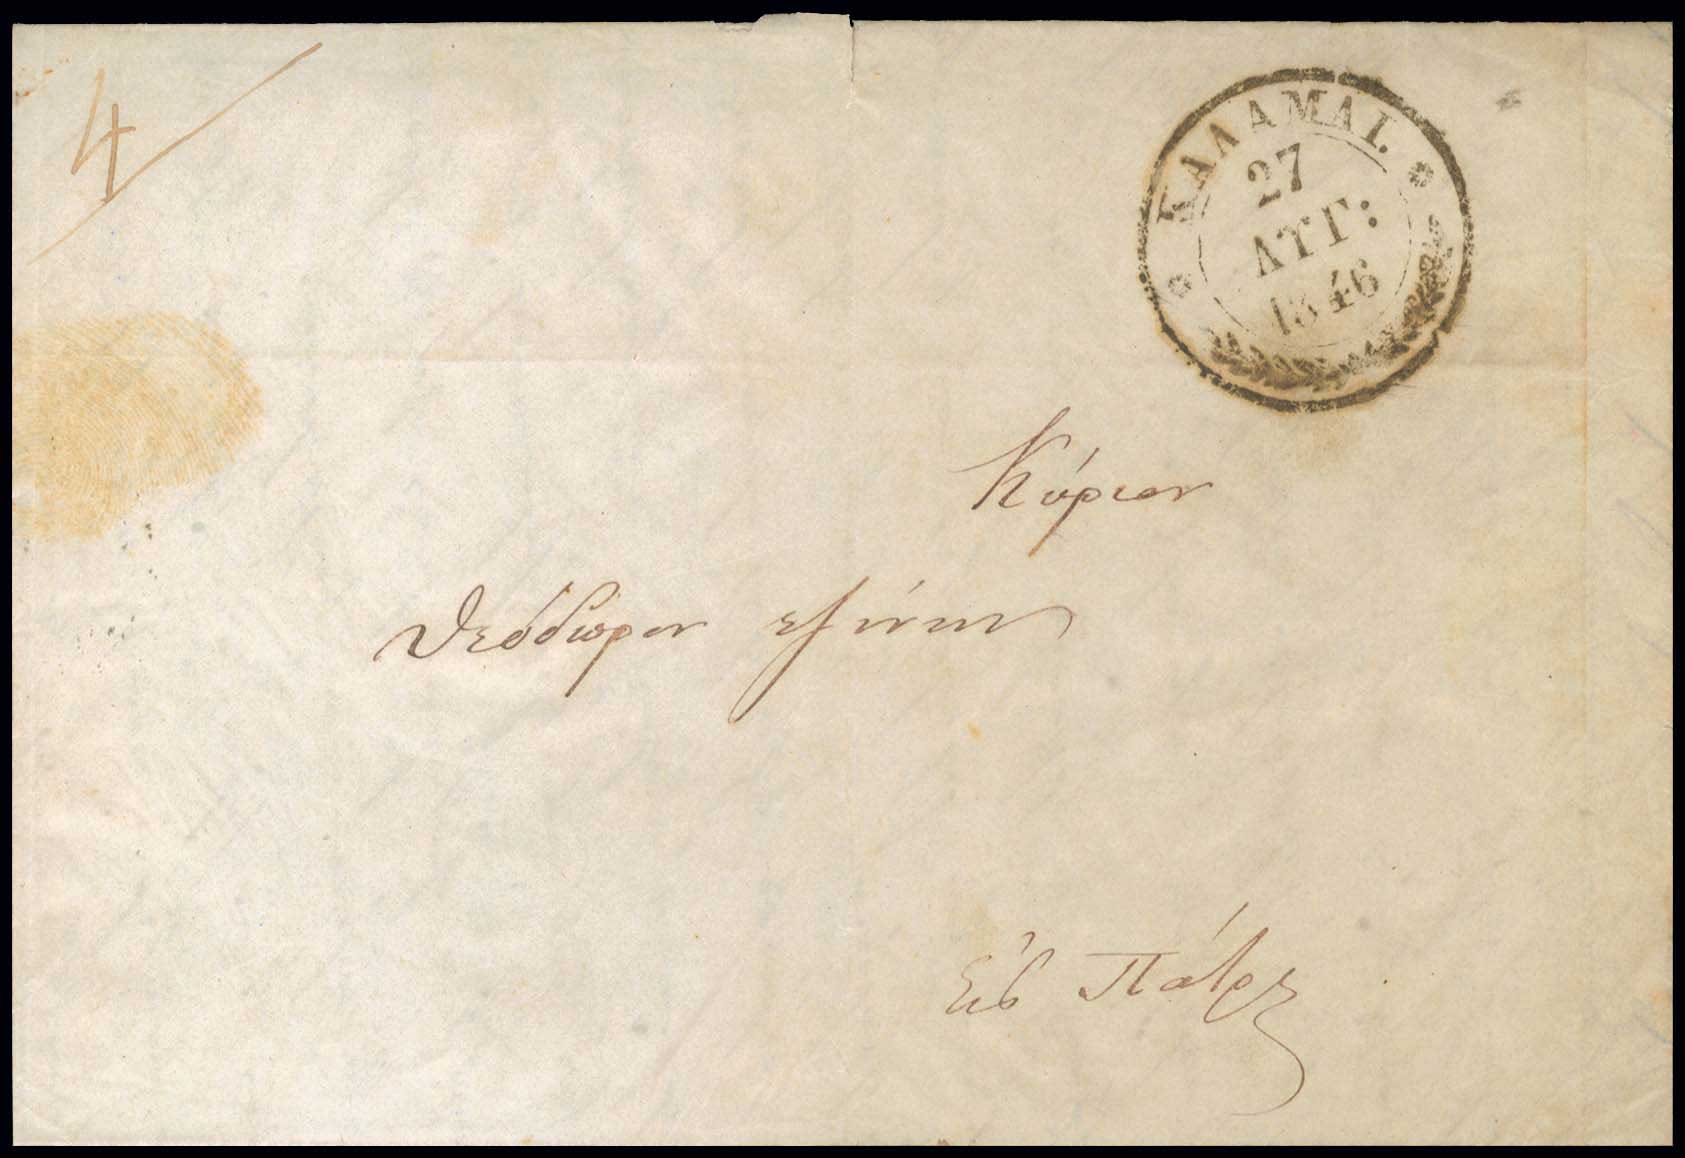 4
ΚΑΛΑΜΑΙ.
27
ΑΥΓ:
1846
Κύριον
Θεόδωρον
Εἰς Πάτρας